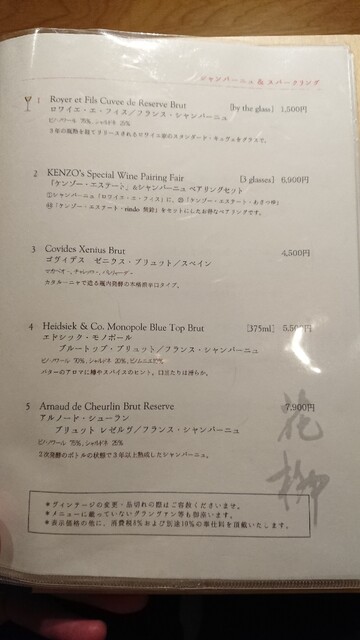 シャンパーニュ & スパークリング
1 Royer et Fils Cuvee de Reserve Brut [by the glass] 1,500円
ロワイエ・エ・フィス/フランス・シャンパーニュ
ピノ・ノワール 75%、シャルドネ 25%
3年の瓶熟を経てリリースされるロワイエ家のスタンダード・キュヴェをグラスで。
2 KENZO's Special Wine Pairing Fair [3 glasses] 6,900円
「ケンゾー・エステート」&シャンパーニュ ペアリングセット
①シャンパーニュ「ロワイエ・エ・フィス」に、白「ケンゾー・エステート・あさつゆ」
「ケンゾー・エステート・rindo 紫鈴」をセットにしたお得なペアリングです。
3 Covides Xenius Brut 4,500円
コヴィデス ゼニウス・ブリュット/スペイン
マカベオ・、チャレッロ・、パレリャーダ・
カタルーニャで造る瓶内発酵の本格派辛口タイプ。
4 Heidsiek & Co. Monopole Blue Top Brut [375ml] 5,500円
エドシック・モノポール
ブルートップ・ブリュット/フランス・シャンパーニュ
ピノ・ノワール 70%、シャルドネ 20%、ピノ・ムニエ10%
バターのアロマに蜂やスパイスのヒント。口当たりは滑らか。
5 Arnaud de Cheurlin Brut Reserve 7,900円
アルノード・シューラン
ブリュット レゼルヴ/フランス・シャンパーニュ
ピノ・ノワール 75%、シャルドネ 25%
2次発酵のボトルの状態で3年以上熟成したシャンパーニュ。
花柳
*ヴィンテージの変更・品切れの際はご容赦くださいませ。
*メニューに載っていないグランヴァン等も御座います。
*表示価格の他に、消費税8%および別途10%の奉仕料を頂戴いたします。